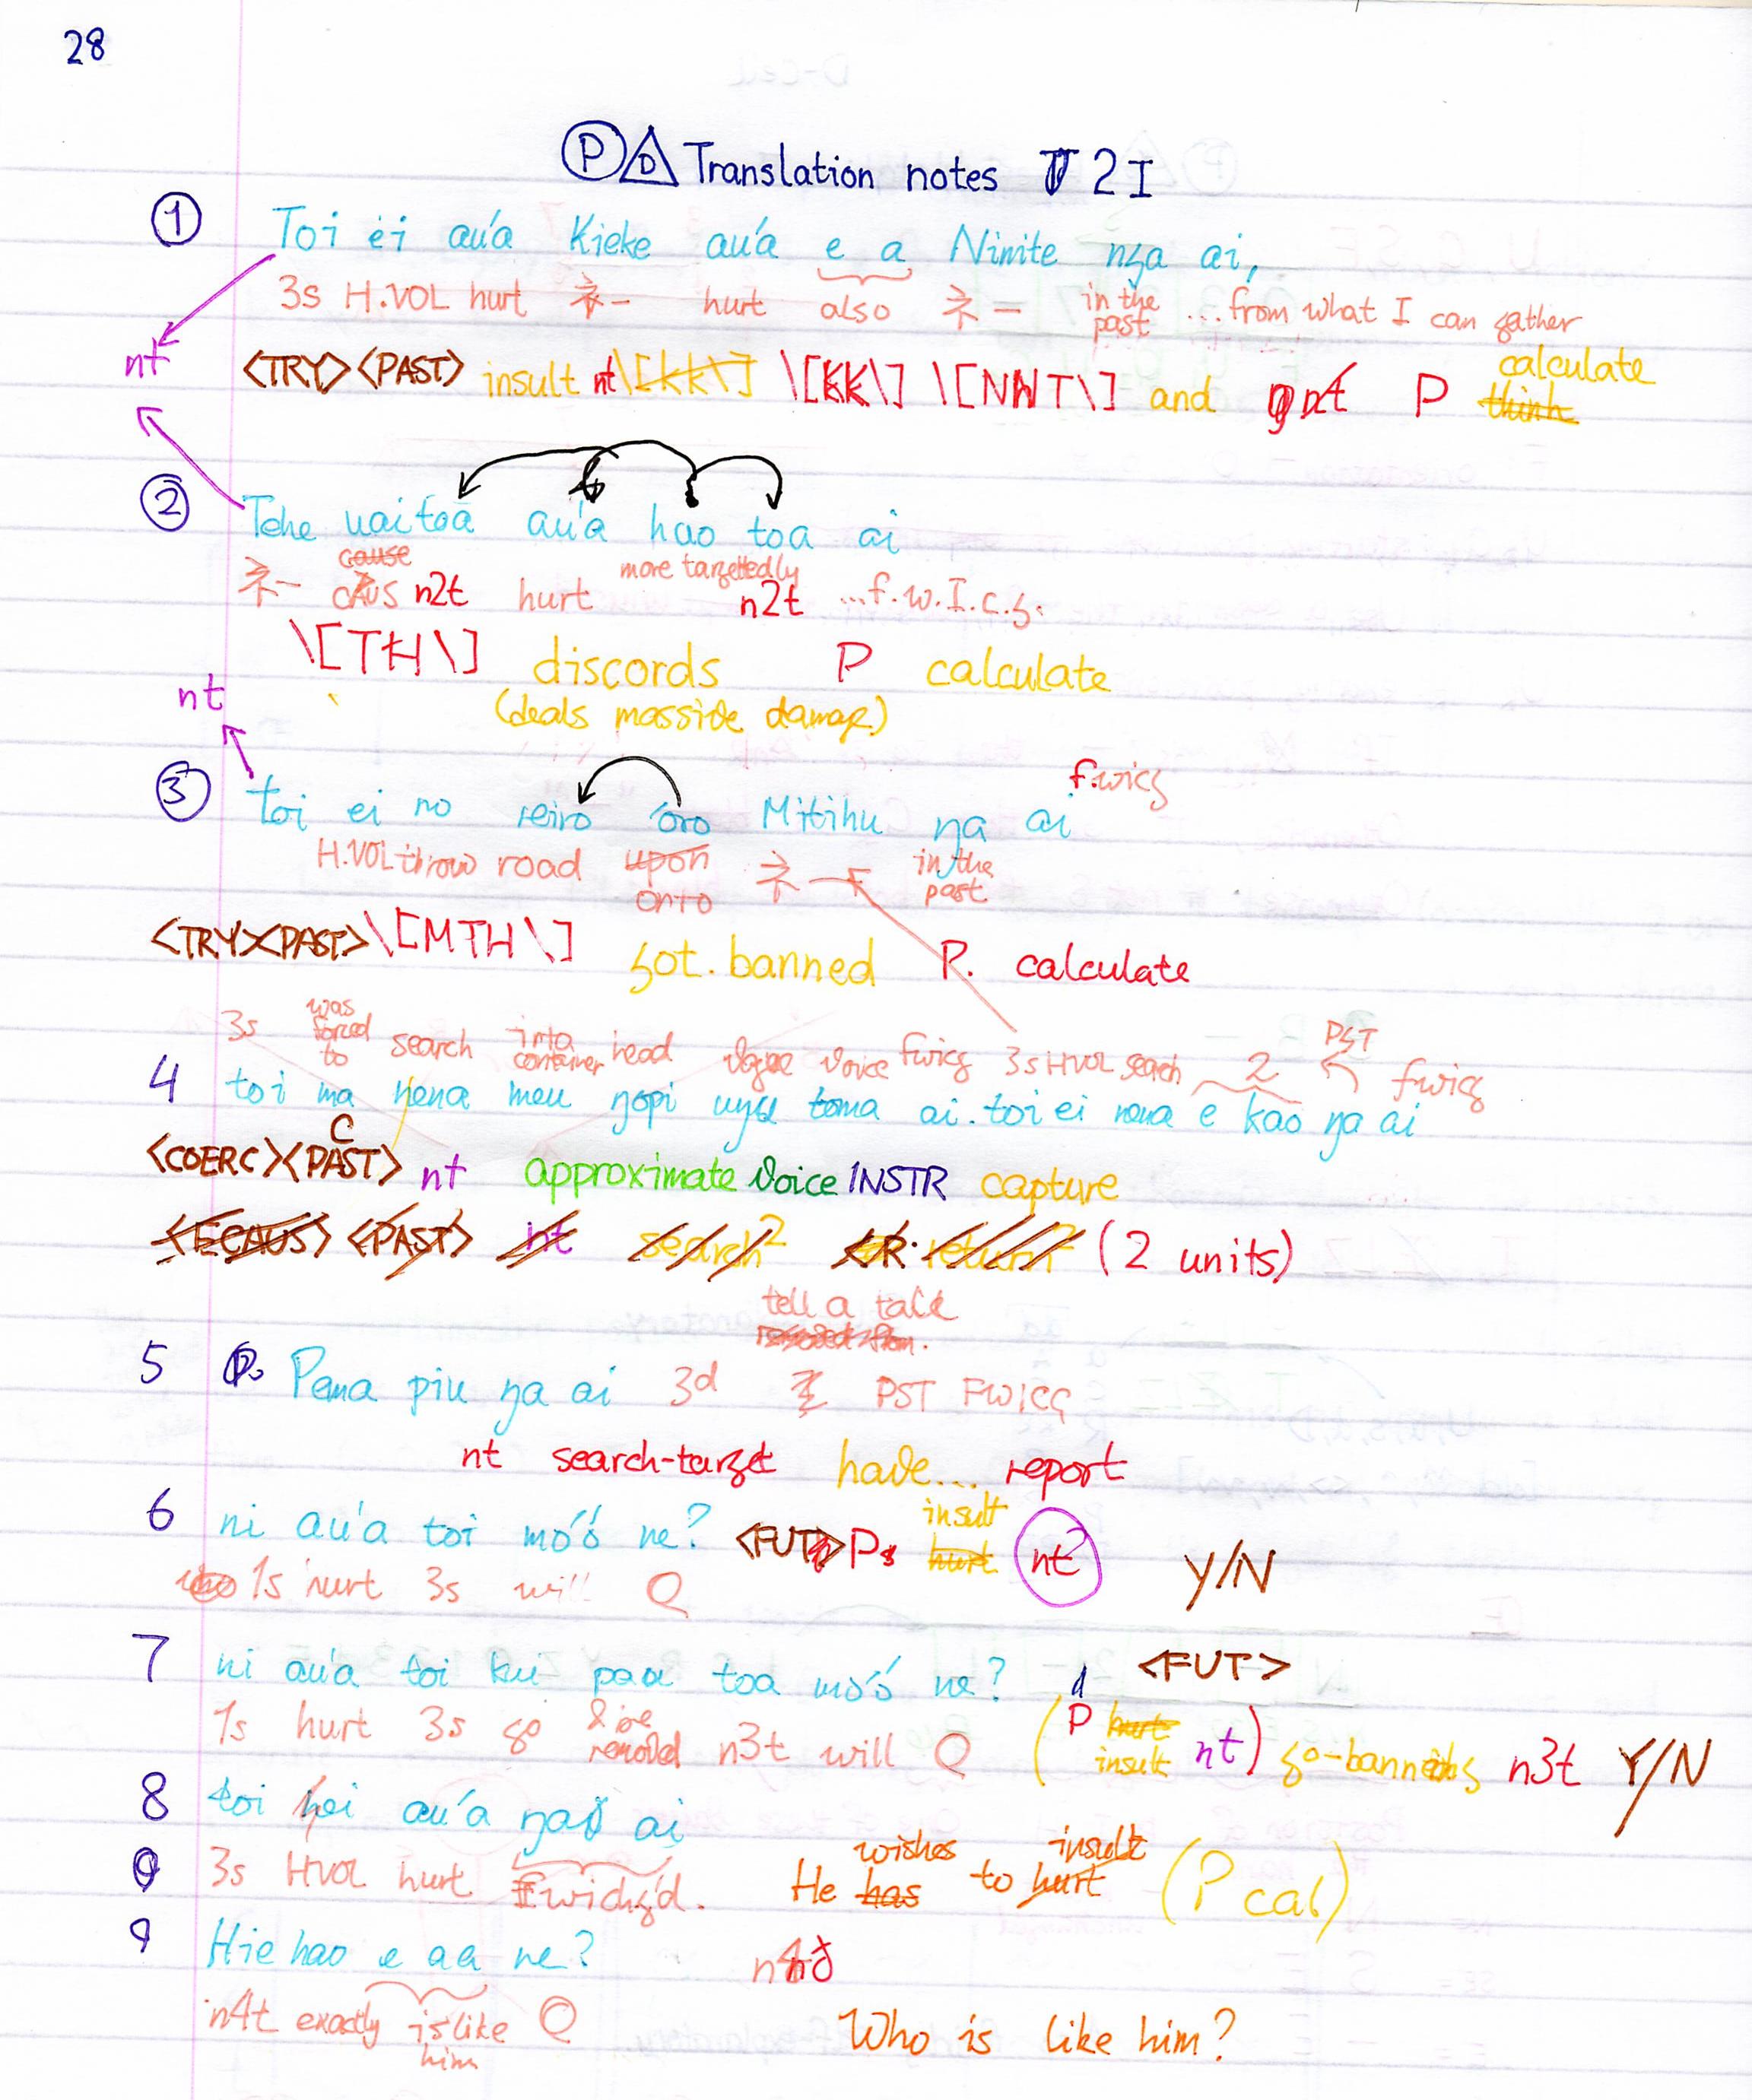 28
P D Translation notes 2 I
① Toi ei au'a Kieke au'a e a Nimite ŋa ai,
3s H.VOL hurt ネー hurt also ネー in the past ...from what I can gather
nt
<TRY><PAST> insult nt \[KK\] \[KK\] \[NNT\] and P think calculate
② Tehe uaitoa au'a hao toa ai
ネー cause CAUS n2t hurt more targettedly n2t ...f.w.I.c.g.
\[TH\] discords P calculate
nt (deals masside damage)
③ toi ei no reiro 'oro Mitihu ŋa ai f.wicg
H.VOL throw road upon onto ネー in the past
<TRY><PAST>\[MTH\] got.banned P. calculate
3s was forced to search into container head vague voice fwicg 3s HVOL search 2 PST fwicg
4 toi ma nena meu ŋopi uyu toma ai. toi ei nena e kao ŋa ai
<COERC><PAST> C nt approximate voice INSTR capture
<ECAUS> <PAST> nt search² (2 units)
tell a tale
5 Pema piu ŋa ai 3d PST FWICG
nt search-target have... report
6 ni au'a toi mo'o' ne? <FUT> P hurt insult nt? Y/N
1s hurt 3s will Q
7 ni au'a toi kui paa toa mo'o' ne? <FUT>
1s hurt 3s go & be removed n3t will Q (P hurt insult nt) go-banned n3t Y/N
8 toi hei au'a ŋao ai
9 3s HVOL hurt Fwichg'd. He has wishes to hurt insult (P cal)
9 Hie hao e aa ne?
n4t exactly is like him Q Who is like him?